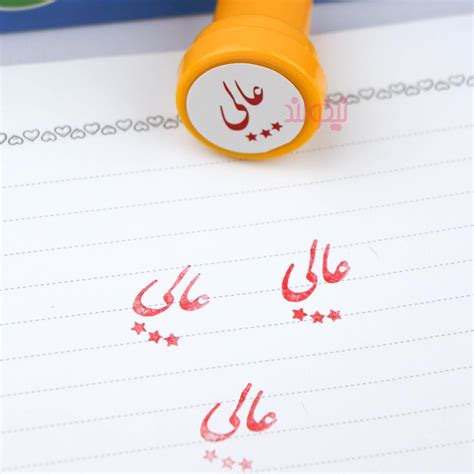 عالی
لیکو لند
عالی
عالی
عالی